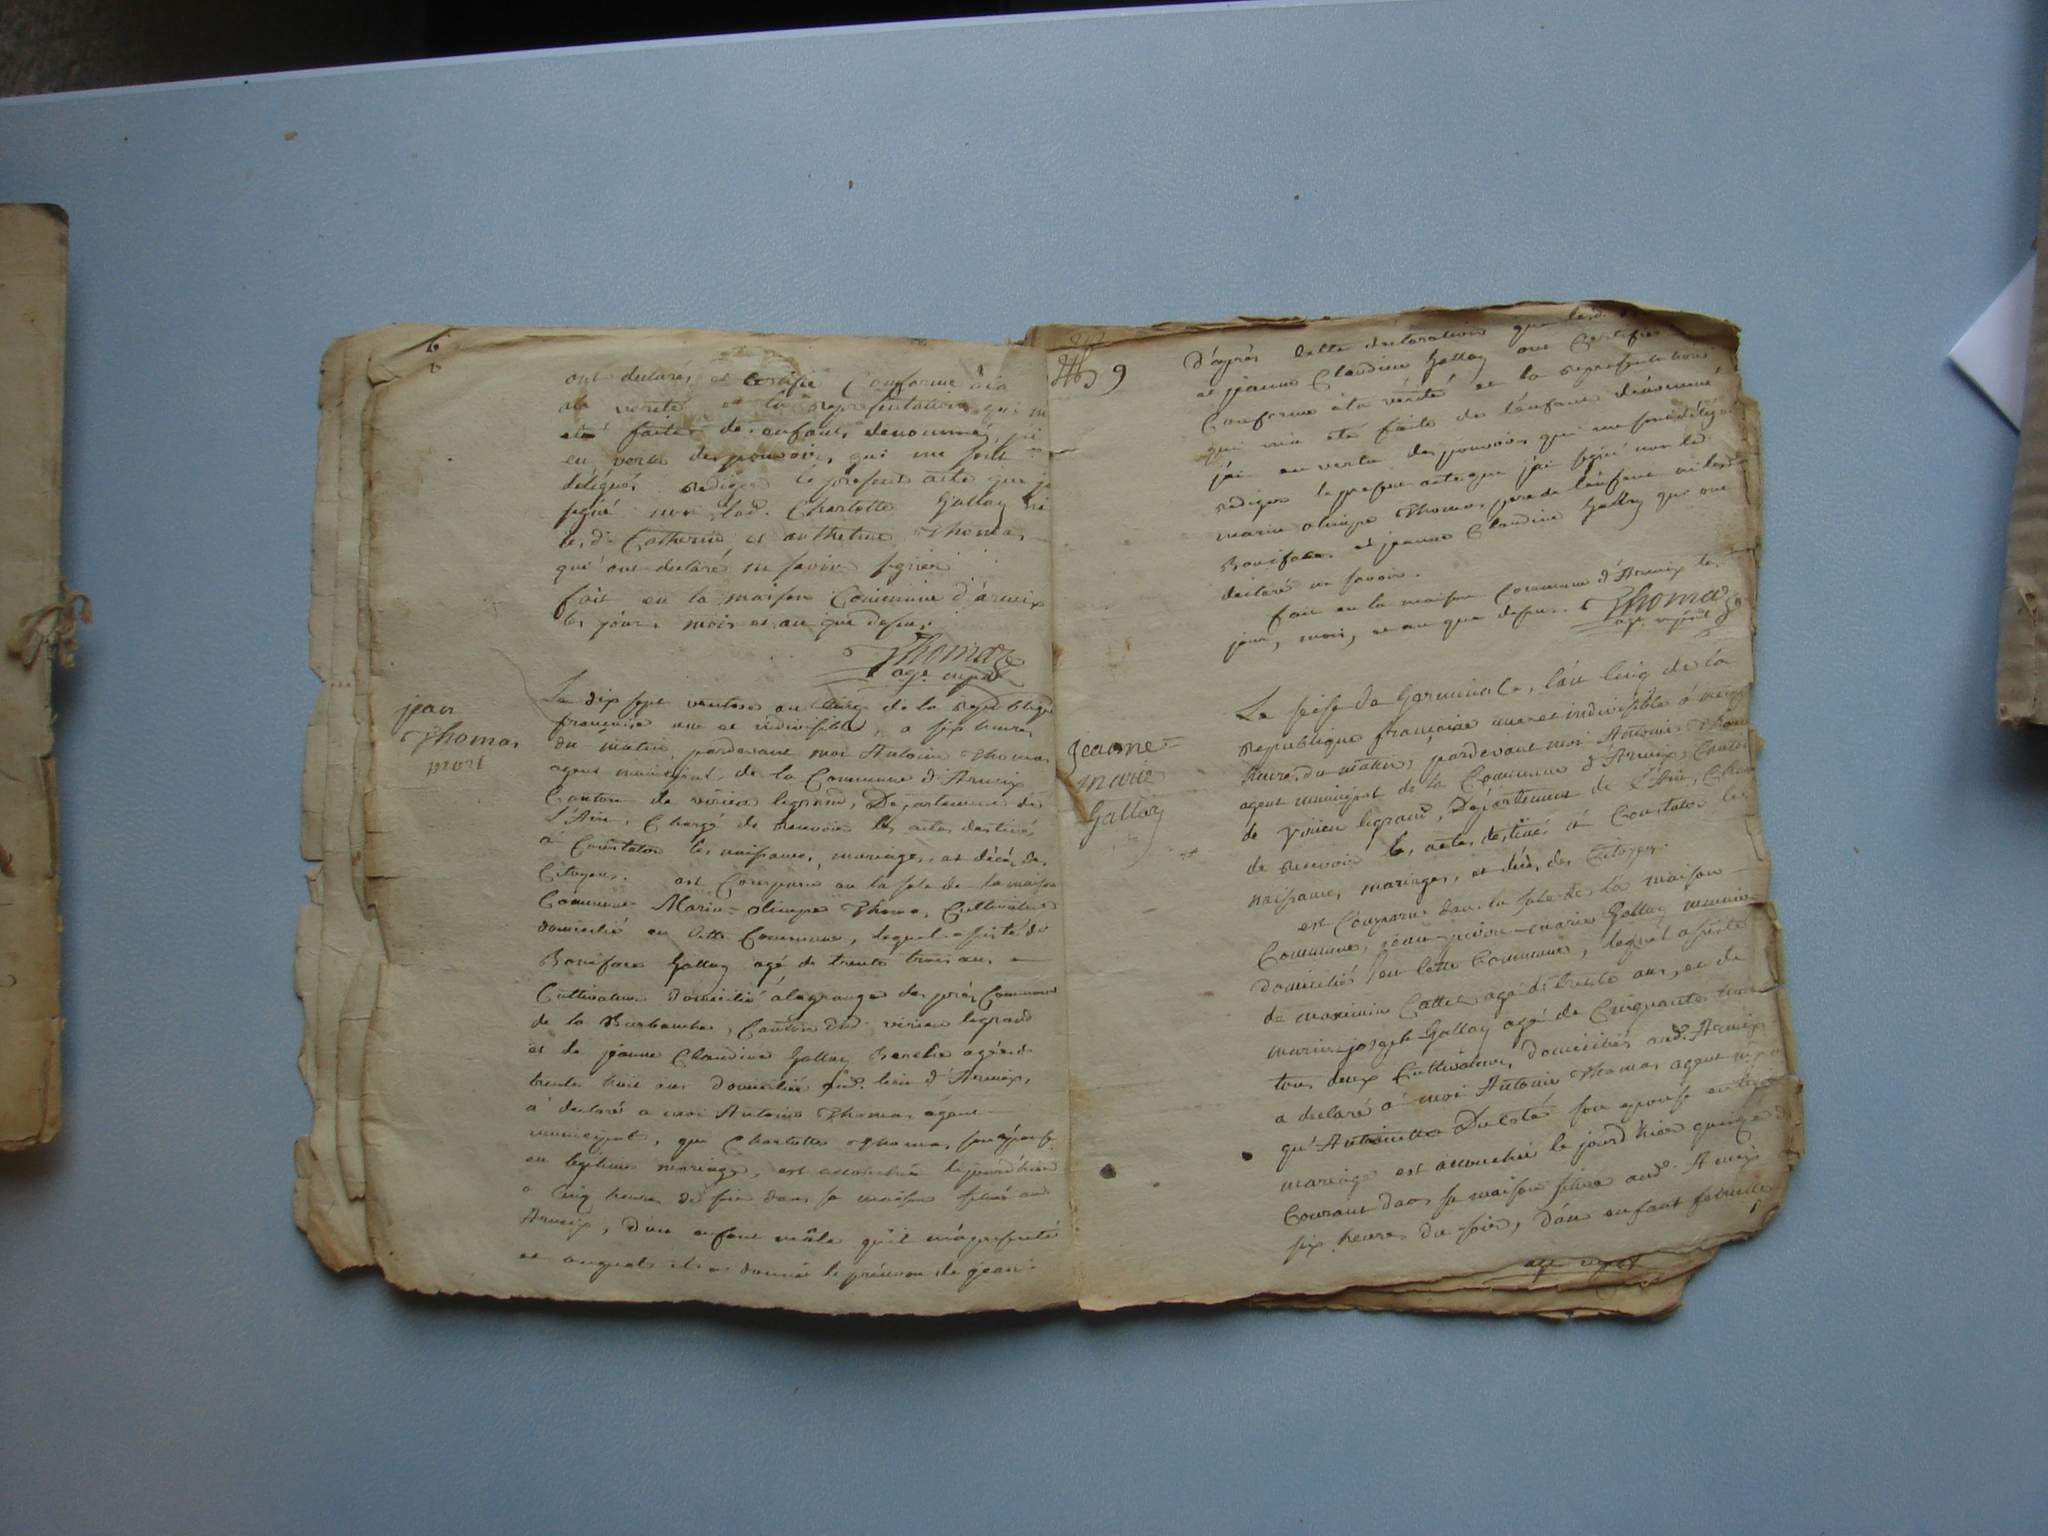 6
ont declarés et certifié Conforme à la
ala verité et la representation qui m
eté faite des enfants denommés j'ai
en vertu des pouvoirs qui me sont
délégués rediger le present acte que j'ai
signé non lad. Charlotte Gallay ni
les d. Catherine et anthelme Thomas
qui ont declaré ne savoir signer
fait en la maison Commune d'armix
les jours mois et an que dessus.
Thomas
age. mpal
jean
Thomas
mort
Le dix sept ventose an cinq de la republique
française une et indivisible, a six heures
du matin, pardevant moi Antoine Thomas
agent municipal de la Commune d'Armix
Canton de virieu legrand, Departement de
L'Ain, Chargé de recevoir les actes destinés
à Constater les naissances, mariages, et décès des
Citoyens. est Comparu en la sale de la maison
Commune Marin-olimpe Thomas Cultivateur
domicilié en cette Commune, lequel assisté de
Boniface Gallay agé de trente trois ans
Cultivateur domicilié alagrange des près Commune
de la Burbanche, Canton dud. virieu legrand
et de jeanne Claudine Gallay agée de
trente huit ans domiciliée aud. lieu d'Armix,
a declaré a moi Antoine Thomas agent
municipal, que Charlotte Thomas son épouse
en legitime mariage, est accouchée le jourd'hier
a cinq heures du soir dans sa maison située aud.
Armix, d'un enfant mâle qu'il m'a presenté
et auquel il a donné le prénom de jean.
9
D'après cette declaration que lesd.
et jeanne Claudine Gallay ont Certifié
Conforme à la vérité et la representation
qui m'a été faite de l'enfant dénommé
j'ai en vertu des pouvoirs qui me sont délégués
rediger le present acte que j'ai signé non led.
marin olimpe Thomas pere de l'enfant ni lesd.
Boniface et jeanne Claudine Gallay qui ont
declaré ne savoir.
fait en la maison Commune d'Armix les
jour, mois, et an que dessus. Thomas
age. mpal
Jeanne
marie
Gallay
Le seise de Germinal, l'an cinq de la
republique française une et indivisible à
heures du matin, pardevant moi Antoine Thomas
agent municipal de la Commune d'Armix, Canton
de virieu legrand, Département de L'Ain, Chargé
de recevoir les actes destinés à Constater les
naissances, mariages, et décès des Citoyens.
est Comparu dans la sale de la maison
Commune, jean-pierre-marie Gallay
domicilié en cette Commune, lequel assisté
de maximin Cattet agé de trente ans, et de
marin-joseph Gallay agé de Cinquante trois
tous deux Cultivateurs, domiciliés aud. Armix
a declaré à moi Antoine Thomas agent mpal
qu'Antoinette son epouse en légitime
mariage est accouchée le jourd'hier quinze du
Courant dans sa maison située aud. Armix
six heures du soir, d'un enfant femelle
age mpal